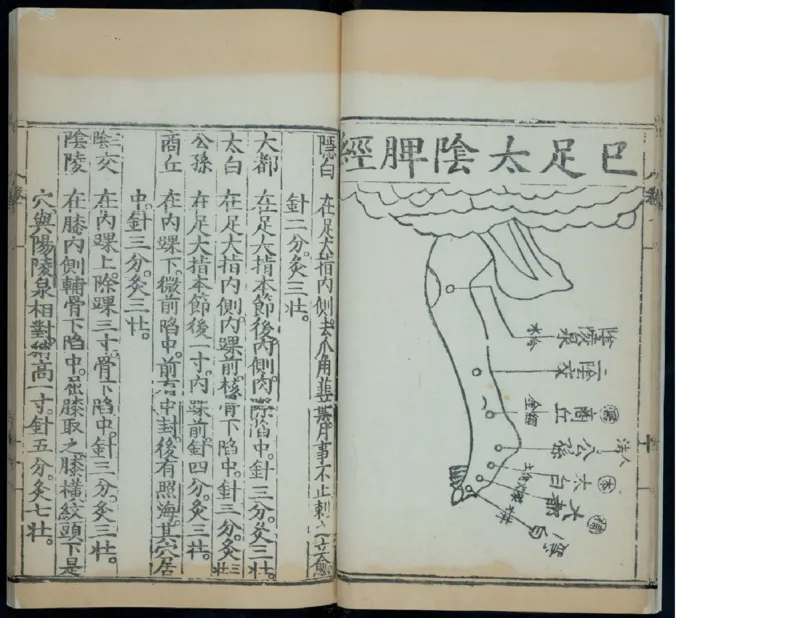 巳足太陰脾經
陰陵泉
水合
三陰交
商丘
公孫
太白
大都
隱白
隱白 在足大指内側去爪角韭葉月事不止刺之立愈
針二分。灸三壯。
大都 在足大指本節後内側肉際陷中。針三分。灸三壯。
太白 在足大指内側内踝前核骨下陷中。針三分。灸三壯
公孫 在足大指本節後一寸。内踝前針四分。灸三壯。
商丘 在内踝下。微前陷中。前有中封。後有照海。其穴居
中。針三分。灸三壯。
三陰交 在内踝上。除踝三寸。骨下陷中。針三分。灸三壯。
陰陵 在膝内側輔骨下陷中。屈膝取之。膝橫紋頭下是
穴與陽陵泉相對。稍高一寸。針五分。灸七壯。